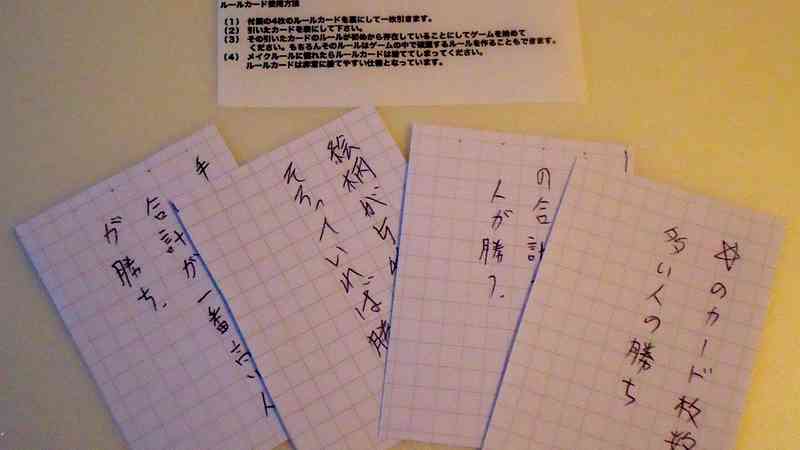 ルールカード使用方法
(1) 付属の4枚のルールカードを裏にして一枚引きます。
(2) 引いたカードを表にして下さい。
(3) その引いたカードのルールが初めから存在していることにしてゲームを始めて
ください。もちろんそのルールはゲームの中で破棄するルールを作ることもできます。
(4) メイクルールに慣れたらルールカードは捨ててしまってください。
ルールカードは非常に捨てやすい仕様となっています。
手
合計が一番高い人
が勝ち.
絵柄が
そろっていれば勝
の合計
人が勝つ.
☆のカード枚数
多い人の勝ち